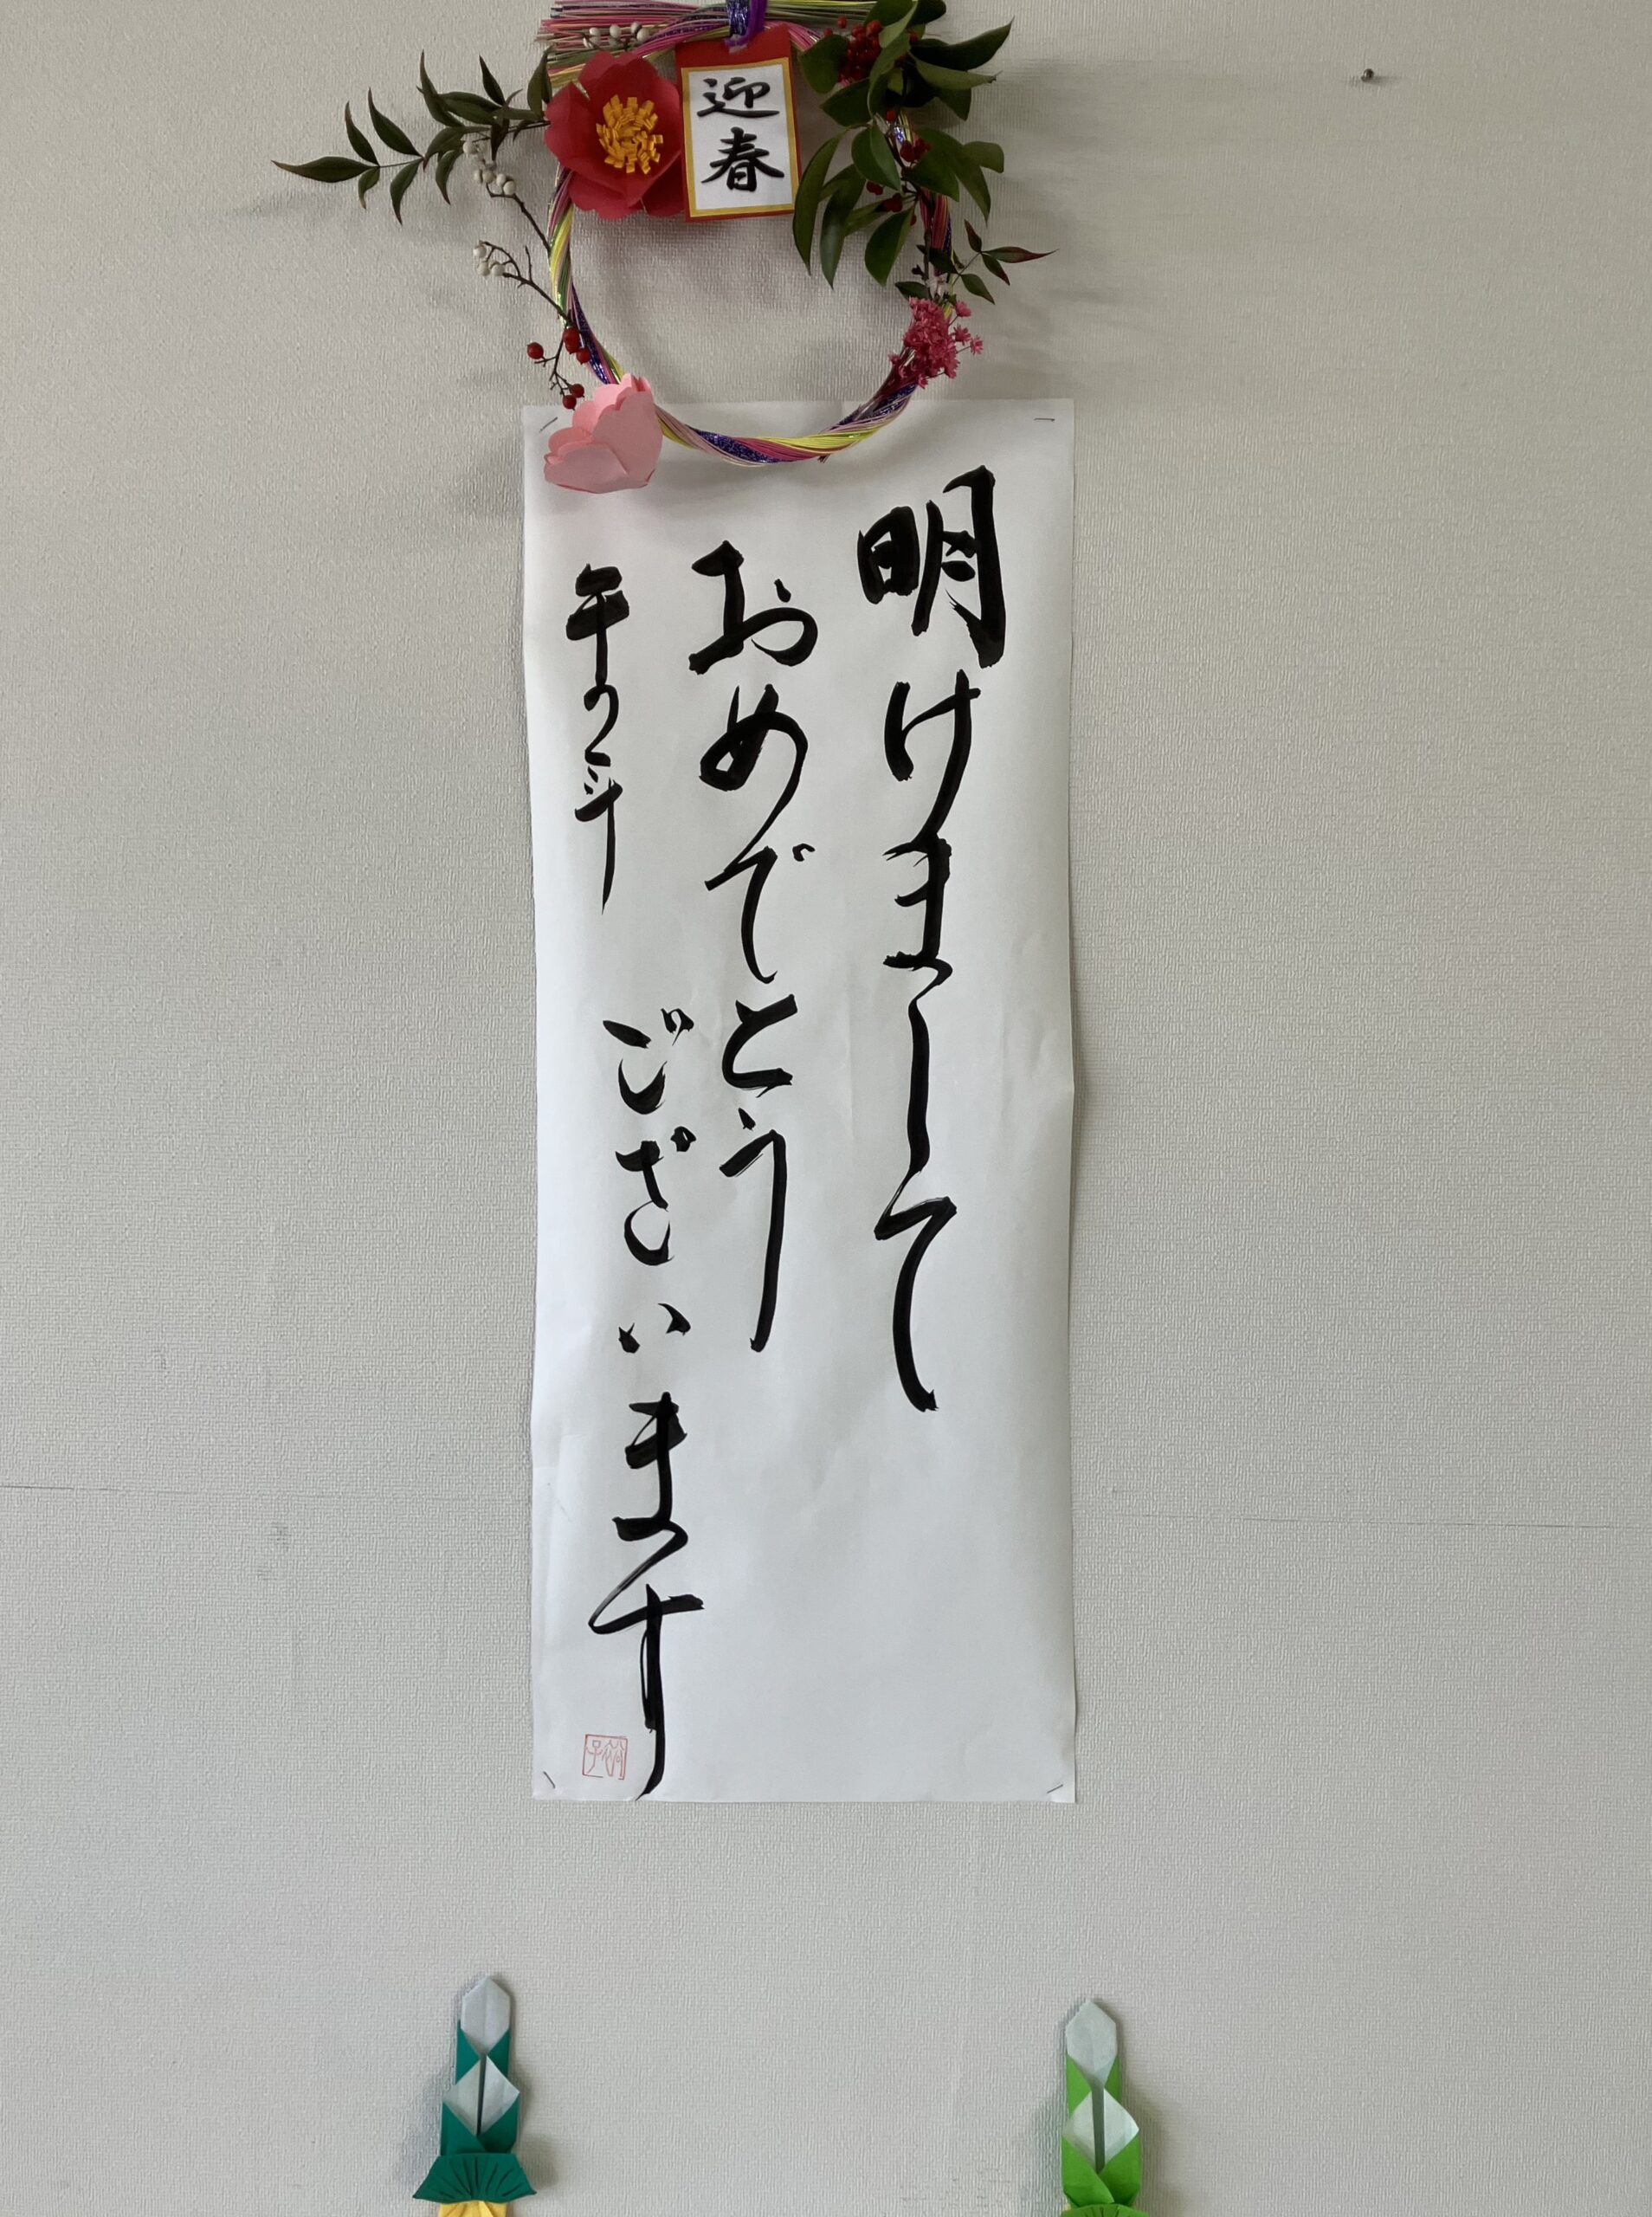 迎春
明けまして
おめでとう
ございます
午の年